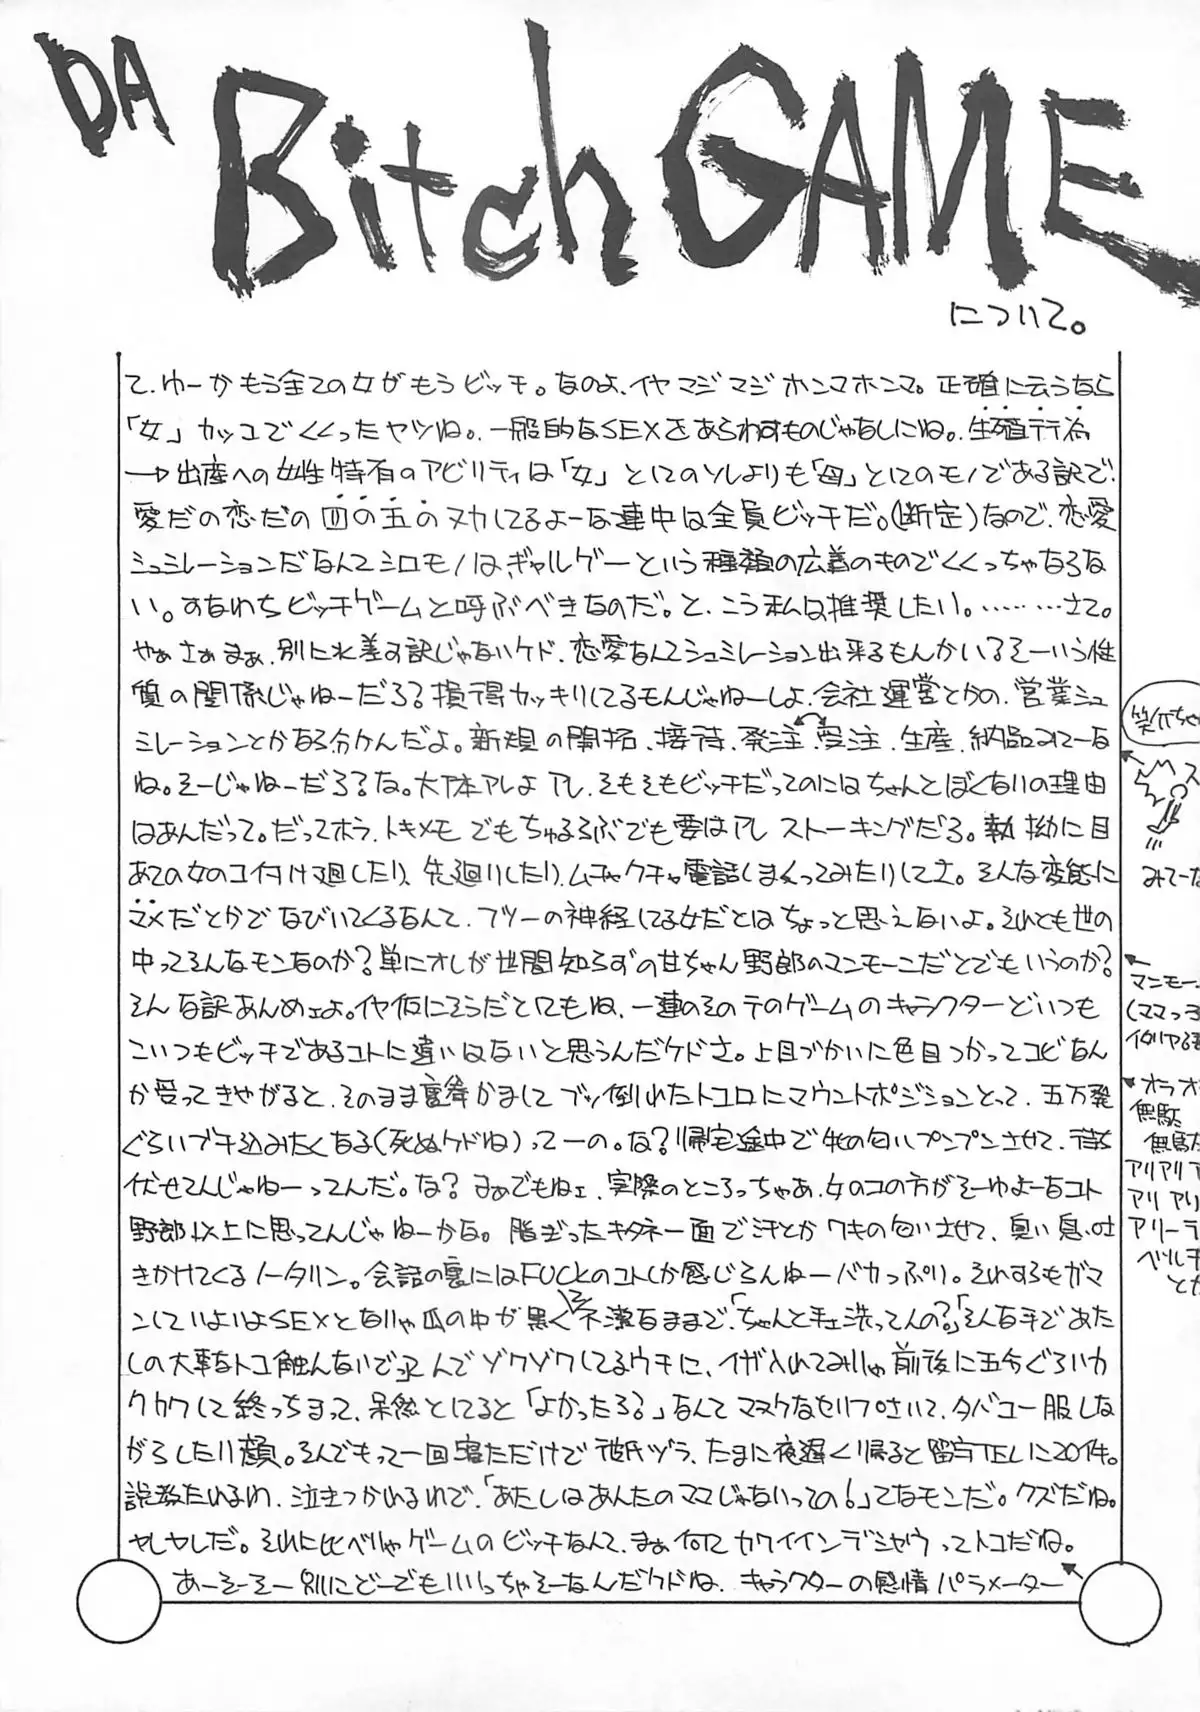 DA Bitch GAME
について。
て、ゆーかもう全ての女がもうビッチ。なのよ、イヤマジマジホンマホンマ。正確に云うなら
「女」カッコでくくったヤツね。一般的なSEXをあらわすものじゃなしにね。生殖行為
→出産への女性特有のアビリティは「女」としてのソレよりも「母」としてのモノである訳で、
愛だの恋だの四の五のヌカしてるよーな連中は全員ビッチだ。(断定)なので、恋愛
シュミレーションだなんてシロモノはギャルゲーという種類の広義のものでくくっちゃならな
い。すなわちビッチゲームと呼ぶべきなのだ。と、こう私は推奨したい。………さて。
やぁさぁまぁ、別に水差す訳じゃないケド、恋愛なんてシュミレーション出来るもんかい?そーいう性
質の関係じゃねーだろ?損得カッキリしてるモンじゃねーしよ、会社運営とかの、営業シュ
ミレーションとかなら分かんだよ。新規の開拓、接待、発注、受注、生産、納品みてーな
ね。そーじゃねーだろ?な。大体アレよアレ、そもそもビッチだってのにはちゃんとぼくないの理由
はあんだって。だってホラ、トキメモでもちゅるるぶでも要はアレ ストーキングだろ。執拗に目
あての女のコ付け廻したり、先廻りしたり、ムチャクチャ電話しまくってみたりしてさ。そんな変態に
マメだとかでなびいてくるなんて、フツーの神経してる女だとはちょっと思えないよ。それとも世の
中ってそんなモンなのか?単にオレが世間知らずの甘ちゃん野郎のマンモーニだとでもいうのか?
そんな訳あんめェよ。イヤ仮にそうだとしてもね、一連のそのテのゲームのキャラクターどいつも
こいつもビッチであるコトに違いはないと思うんだケドさ。上目づかいに色目つかってコビなん
か売ってきやがると、そのまま裏拳かましてブッ倒れたトコロにマウントポジションとって、五万発
ぐらいブチ込みたくなる(死ぬケドね)ってーの。な?帰宅途中で牝の匂いプンプンさせて、待ち
伏せてんじゃねーってんだ。な?まぁでもねェ、実際のところっちゃあ、女のコの方がそーゆよーなコト
野郎以上に思ってんじゃねーかな。脂ぎったキタネー面で汗とかワキの匂いさせて、臭い息吐
きかけてくるノータリン。会話の裏にはFUCKのコトしか感じらんねーバカっぷり。それするもガマ
ンしていよいよSEXとなりゃ爪の中が黒くて不潔なままで、「ちゃんと手ェ洗ってんの?」「そんな手であた
しの大事なトコ触んないで」ってゾクゾクしてるウチに、イザ入れてみりゃ前後に五分ぐらいカ
クカクして終っちまって、呆然としてると「よかったろ?」なんてマヌケなセリフさいて、タバコ一服しな
がらしたり顔。そんでもって一回寝ただけで彼氏ヅラ、たまに夜遅く帰ると留守TELに20件。
説教たれるわ、泣きつかれるわで、「あたしはあんたのママじゃないっての!」てなモンだ。クズだね。
ヤレヤレだ。それに比べりゃゲームのビッチなんて、まぁ何てカワイインデショウってトコだね。
あーそーそー別にどーでもいいっちゃそーなんだケドね、キャラクターの感情パラメーター
みてーな
マンモー
(ママっ子
オラオ
無駄
無駄
アリアリア
アリ アリ
アリーデ
ベルチ
とか